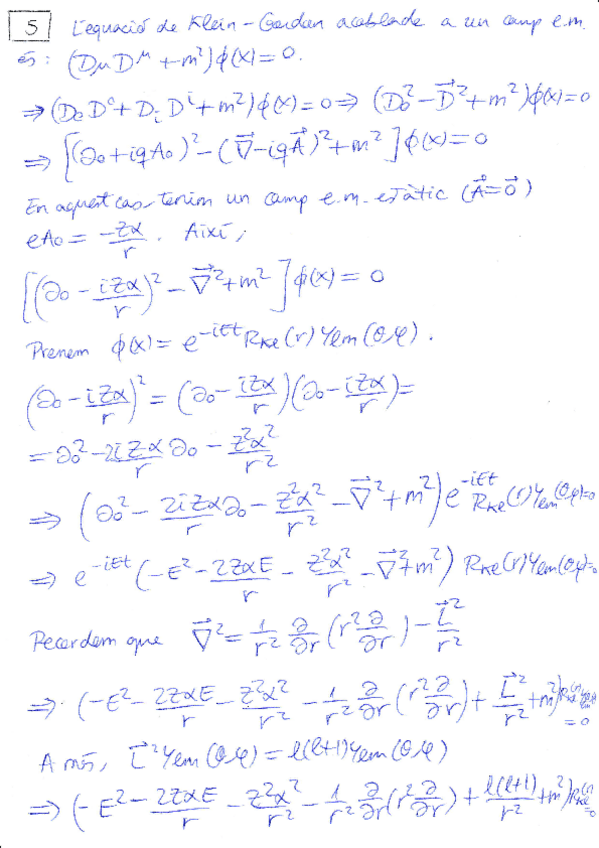 5 L'equació de Klein-Gordan acoblada a un camp e.m.
és: (D_μ D^μ + m²)ϕ(x) = 0.
⇒ (D₀D⁰ + D_i D^i + m²)ϕ(x) = 0 ⇒ (D₀² − D⃗² + m²)ϕ(x) = 0
⇒ [(∂₀ + iqA₀)² − (∇⃗ − iqA⃗)² + m²]ϕ(x) = 0
En aquest cas tenim un camp e.m. estàtic (A⃗ = 0⃗)
eA₀ = −Zα/r . Així,
[(∂₀ − iZα/r)² − ∇⃗² + m²]ϕ(x) = 0
Prenem ϕ(x) = e^{−iEt} R_{Kℓ}(r) Y_{ℓm}(θ,φ).
(∂₀ − iZα/r)² = (∂₀ − iZα/r)(∂₀ − iZα/r) =
= ∂₀² − 2iZα/r ∂₀ − Z²α²/r²
⇒ (∂₀² − 2iZα/r ∂₀ − Z²α²/r² − ∇⃗² + m²) e^{−iEt} R_{Kℓ}(r) Y_{ℓm}(θ,φ) = 0
⇒ e^{−iEt} (−E² − 2ZαE/r − Z²α²/r² − ∇⃗² + m²) R_{Kℓ}(r) Y_{ℓm}(θ,φ) = 0
Recordem que ∇⃗² = 1/r² ∂/∂r (r² ∂/∂r) − L⃗²/r²
⇒ (−E² − 2ZαE/r − Z²α²/r² − 1/r² ∂/∂r (r² ∂/∂r) + L⃗²/r² + m²) R_{Kℓ}(r) Y_{ℓm} = 0
A més, L⃗² Y_{ℓm}(θ,φ) = ℓ(ℓ+1) Y_{ℓm}(θ,φ)
⇒ (−E² − 2ZαE/r − Z²α²/r² − 1/r² ∂/∂r (r² ∂/∂r) + ℓ(ℓ+1)/r² + m²) R_{Kℓ}(r) = 0